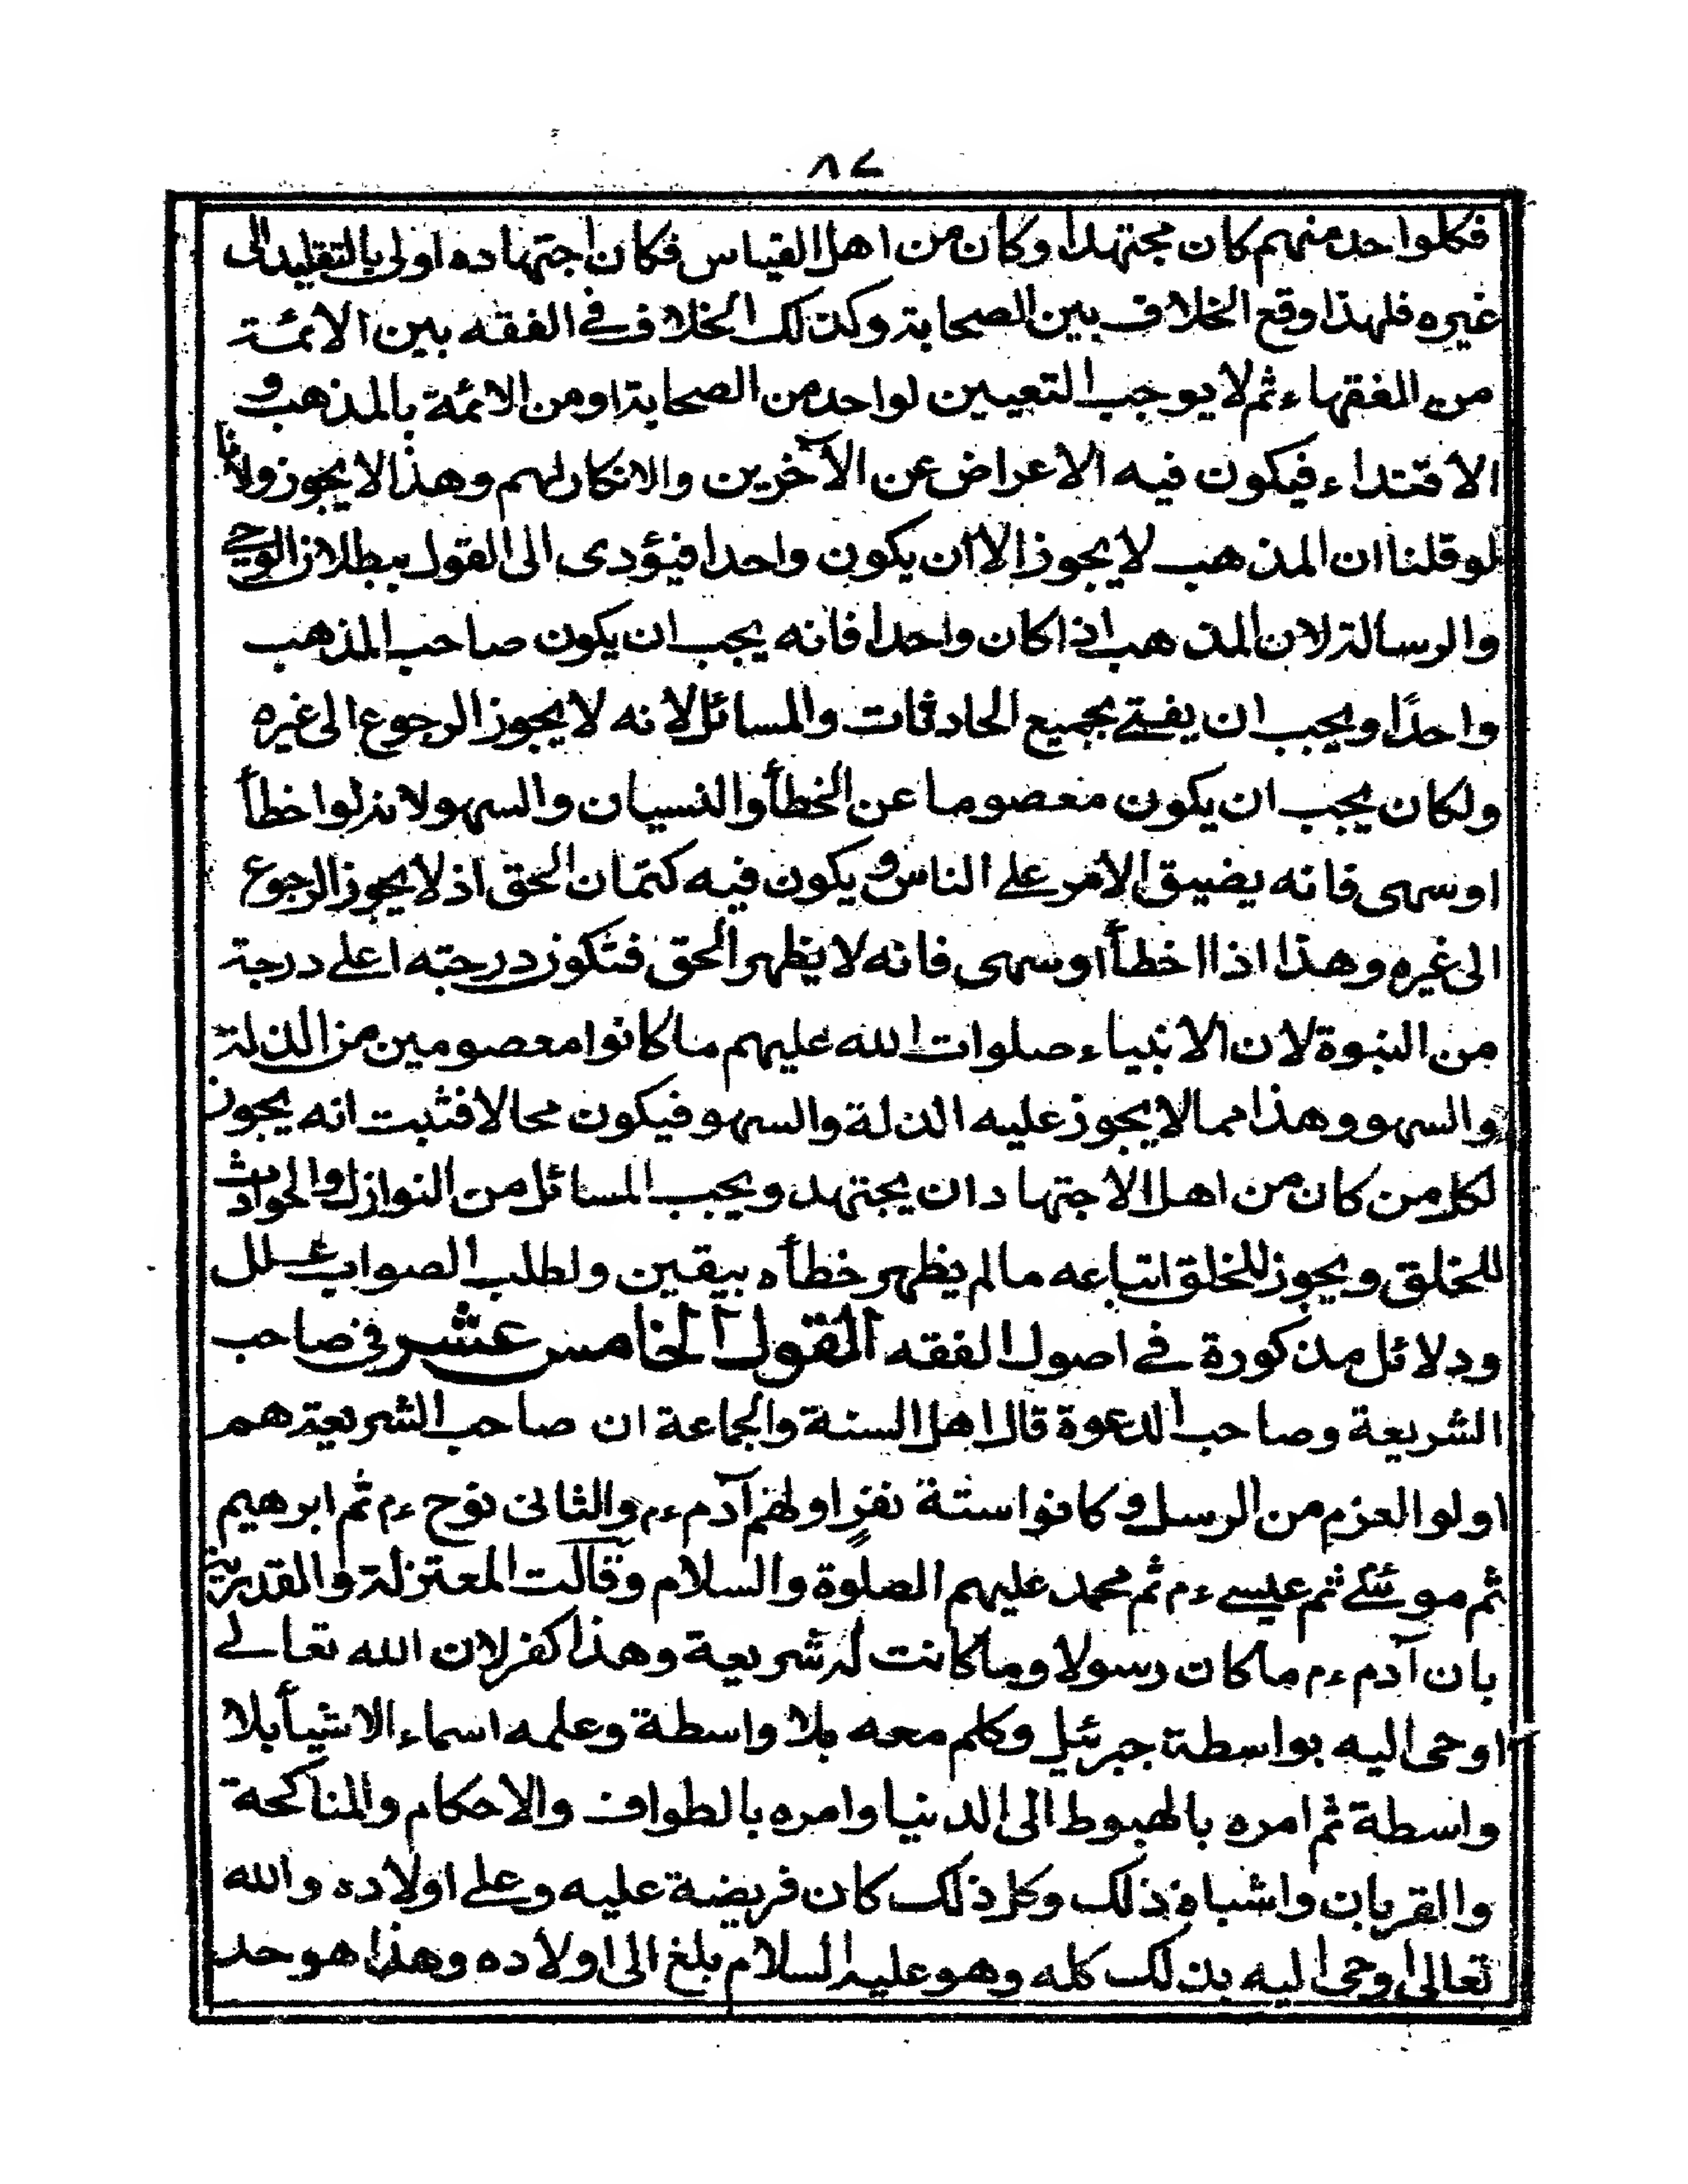 ٨٤
فكلواحد منهم كان مجتهدا وكان من اهل القياس فكان اجتهاده اولى بالتقليد الى
غيره فلهذا وقع الخلاف بين الصحابة وكذلك الخلاف في الفقه بين الائمة
من الفقهاء ثم لا يوجب التعيين لواحد من الصحابة او من الائمة بالمذهب و
الاقتداء فيكون فيه الاعراض عن الآخرين والانكار لهم وهذا لا يجوز ولانا
لو قلنا ان المذهب لا يجوز الا أن يكون واحدا فيؤدى الى القول ببطلان الوحي
والرسالة لان المذهب اذا كان واحدا فانه يجب ان يكون صاحب المذهب
واحدًا ويجب ان يفتي بجميع الحادثات والمسائل لانه لا يجوز الرجوع الى غيره
ولكان يجب ان يكون معصوما عن الخطأ والنسيان والسهو لانه لو اخطأ
او سهى فانه يضيق الامر على الناس و يكون فيه كتمان الحق اذ لا يجوز الرجوع
الى غيره وهذا اذا اخطأ او سهى فانه لا يظهر الحق فتكون درجته اعلى درجة
من النبوة لان الانبياء صلوات الله عليهم ما كانوا معصومين من الذلة
والسهو وهذا مما لا يجوز عليه الذلة والسهو فيكون محالا فثبت انه يجوز
لكل من كان من اهل الاجتهاد ان يجتهد ويجب المسائل من النوازل والحوادث
للخلق ويجوز للخلق اتباعه ما لم يظهر خطأه بيقين ولطلب الصواب علل
ودلائل مذكورة في اصول الفقه القول الخامس عشر في صاحب
الشريعة وصاحب الدعوة قال اهل السنة والجماعة ان صاحب الشريعة هم
اولوا العزم من الرسل و كانوا ستة نفرٍ اولهم آدم ءم والثانى نوح ءم ثم ابرهيم
ثم موسى ثم عيسى ءم ثم محمد عليهم الصلوة والسلام وقالت المعتزلة والقدرية
بان آدم ءم ما كان رسولا وما كانت له شريعة وهذا كفر لان الله تعالى
اوحى اليه بواسطة جبرئيل وكلم معه بلا واسطة وعلمه اسماء الاشيأ بلا
واسطة ثم امره بالهبوط الى الدنيا وامره بالطواف والاحكام والمناكحة
والقربان واشباه ذلك وكل ذلك كان فريضة عليه وعلى اولاده والله
تعالى اوحى اليه بذلك كله وهو عليه السلام بلغ الى اولاده وهذا هو حد